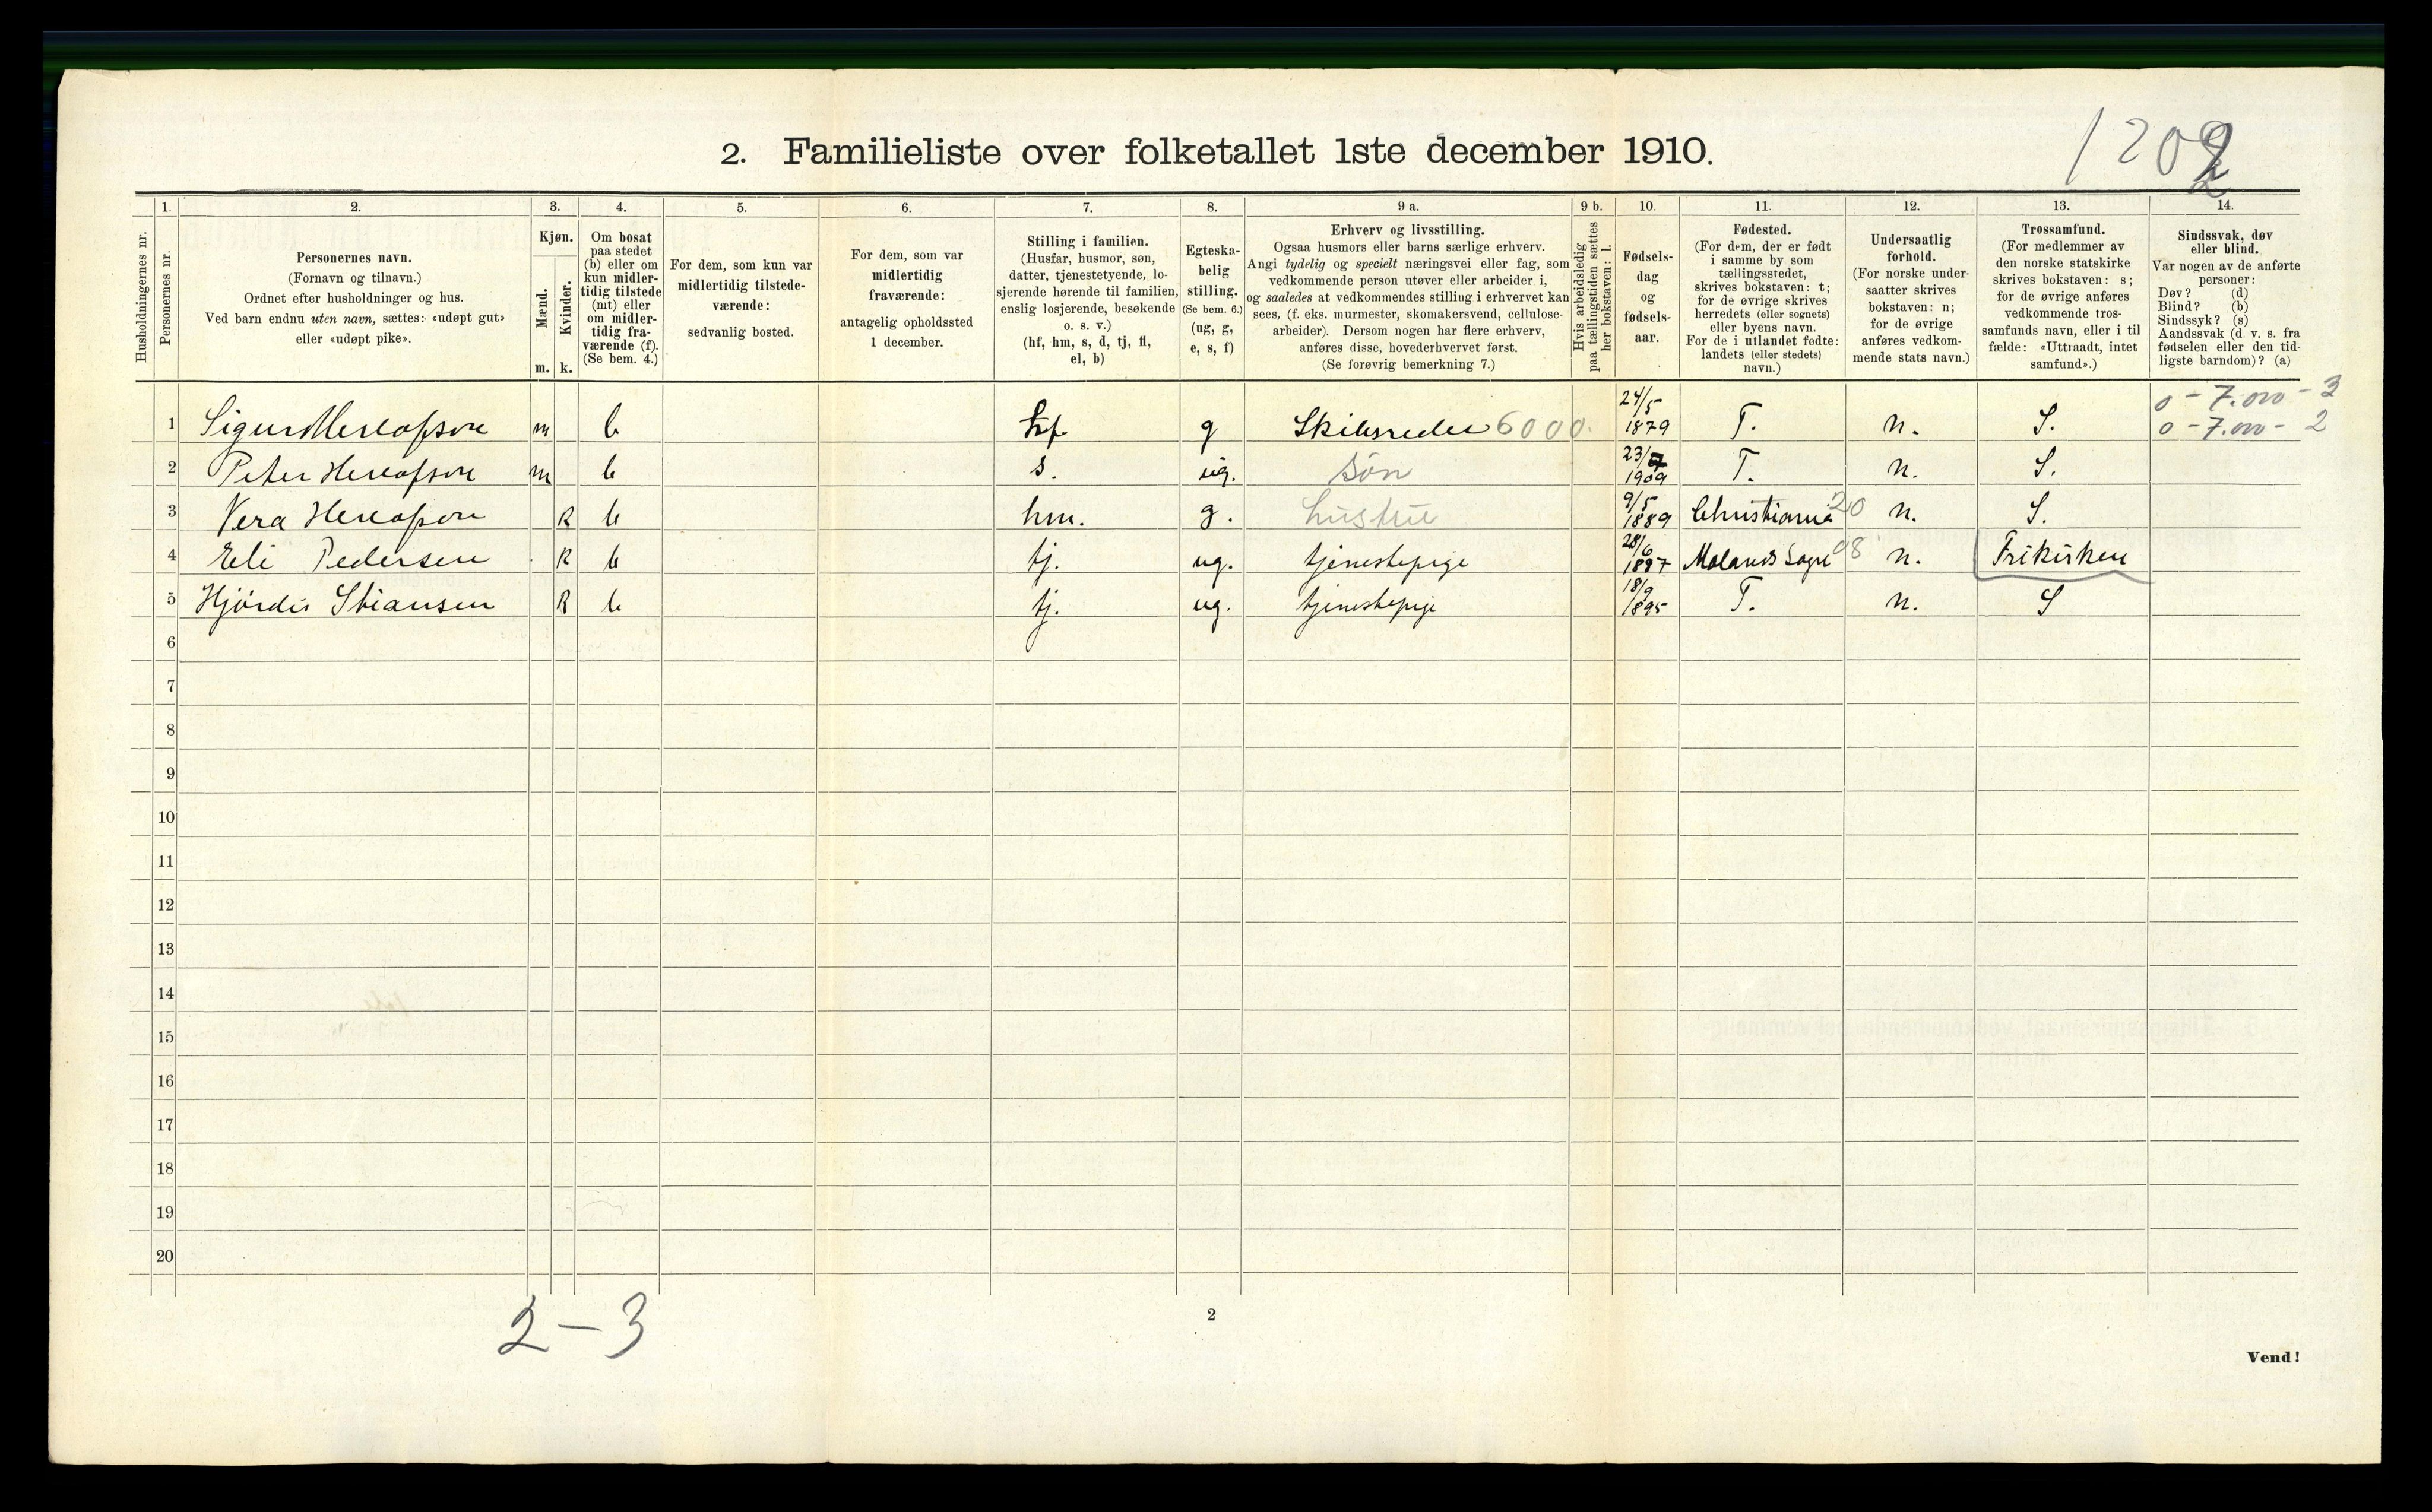 1202
2. Familieliste over folketallet 1ste december 1910.
1. 2. 3. 4. 5. 6. 7. 8. 9 a. 9 b. 10. 11. 12. 13. 14.
Husholdningernes nr.
Personernes nr.
Personernes navn.
(Fornavn og tilnavn.)
Ordnet efter husholdninger og hus.
Ved barn endnu uten navn, sættes: «udøpt gut»
eller «udøpt pike».
Kjøn.
Mænd.
m.
Kvinder.
k.
Om bosat
paa stedet
(b) eller om
kun midler-
tidig tilstede
(mt) eller
om midler-
tidig fra-
værende (f).
(Se bem. 4.)
For dem, som kun var
midlertidig tilstede-
værende:
sedvanlig bosted.
For dem, som var
midlertidig
fraværende:
antagelig opholdssted
1 december.
Stilling i familien.
(Husfar, husmor, søn,
datter, tjenestetyende, lo-
sjerende hørende til familien,
enslig losjerende, besøkende
o. s. v.)
(hf, hm, s, d, tj, fl,
el, b)
Egteska-
belig
stilling.
(Se bem. 6.)
(ug, g,
e, s, f)
Erhverv og livsstilling.
Ogsaa husmors eller barns særlige erhverv.
Angi tydelig og specielt næringsvei eller fag, som
vedkommende person utøver eller arbeider i,
og saaledes at vedkommendes stilling i erhvervet kan
sees, (f. eks. murmester, skomakersvend, cellulose-
arbeider). Dersom nogen har flere erhverv,
anføres disse, hovederhvervet først.
(Se forøvrig bemerkning 7.)
Hvis arbeidsledig
paa tællingstiden sættes
her bokstaven: l.
Fødsels-
dag
og
fødsels-
aar.
Fødested.
(For dem, der er født
i samme by som
tællingsstedet,
skrives bokstaven: t;
for de øvrige skrives
herredets (eller sognets)
eller byens navn.
For de i utlandet fødte:
landets (eller stedets)
navn.)
Undersaatlig
forhold.
(For norske under-
saatter skrives
bokstaven: n;
for de øvrige
anføres vedkom-
mende stats navn.)
Trossamfund.
(For medlemmer av
den norske statskirke
skrives bokstaven: s;
for de øvrige anføres
vedkommende tros-
samfunds navn, eller i til
fælde: «Uttraadt, intet
samfund».)
Sindssvak, døv
eller blind.
Var nogen av de anførte
personer:
Døv? (d)
Blind? (b)
Sindssyk? (s)
Aandssvak (d v. s. fra
fødselen eller den tid-
ligste barndom)? (a)
1 Sigurd Herlofson m b hf. g Skibsreder 6000. 24/5 1879 T. n. S. 0 - 7.000 - 3
0 - 7.000 - 2
2 Peter Herlofson m b s. ug. søn 23/7 1909 T. n. S.
3 Vera Herlofson K b hm. g. hustru 9/5 1889 Christiania 20 n. S.
4 Eli Pedersen K b tj. ug. tjenestepige 28/6 1897 Molands Sogn 98 n. Frikirken
5 Hjördis Stiansen K b tj. ug. tjenestepige 18/9 1895 T. n. S
6
7
8
9
10
11
12
13
14
15
16
17
18
19
20
2 - 3
2
Vend!